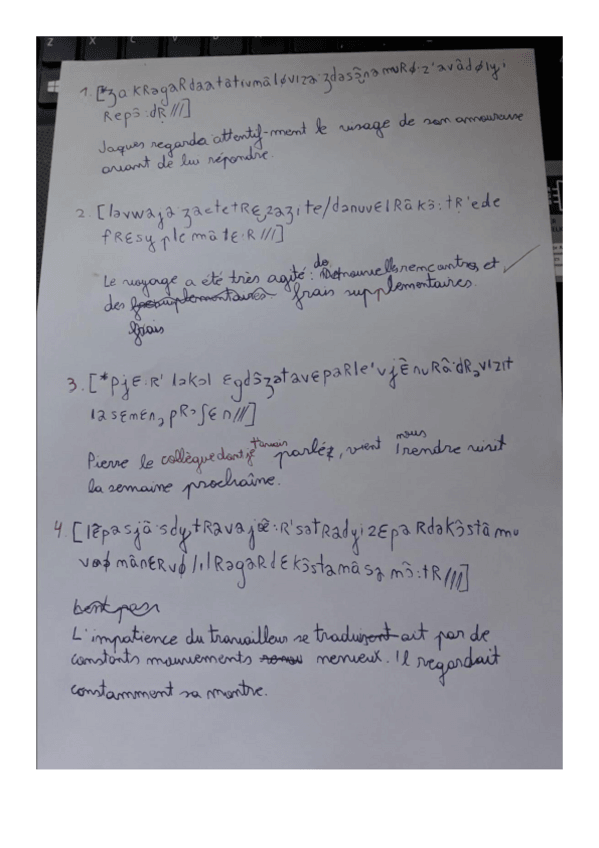 1. [*ʒa kRəgaRdaatãtivmãløvizaˑʒdəsɔ̃namuRøˑzˈavãdølɥi
Repɔ̃ːdR///]
Jaques regarda attentif-ment le visage de son amoureuse
avant de lui répondre.
2. [ləvwajaˑʒaetetRɛzaʒite/dənuvɛlRãkɔ̃ːtRˈede
fRɛsyplemãtɛːR///]
Le voyage a été très agité: de nouvelles rencontres, et
des frais supplementaires.
frais
3. [*pjɛːRˈ ləkɔl ɛgdɔ̃ʒətavɛpaRleˈvjɛ̃nuRãˑdRəvizit
lasəmɛnəpRɔʃɛn///]
Pierre le collègue dont je t'avais parléz, vient nous rendre visit
la semaine prochaîne.
4. [lɛ̃pasjãˑsdytRavajœːRˈsətRadɥizɛpaRdəkɔ̃stãmu
vmãnɛRvø/ilRəgaRdɛkɔ̃stamãsamɔ̃ːtR///]
L'impatience du travailleur se traduisent ait par de
constants mouvements nerveux. Il regardait
constamment sa montre.